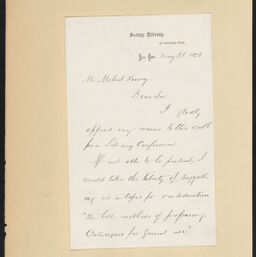 Society Library,
New York, May 21. 1876
Mr. Melvil Dewey
Dear Sir
I gladly
append my name to the call
for a Library Conference.
If not able to be present, I
would take the liberty of suggest-
ing as a topic for consideration
"the best methods of preparing
Catalogues for general use"